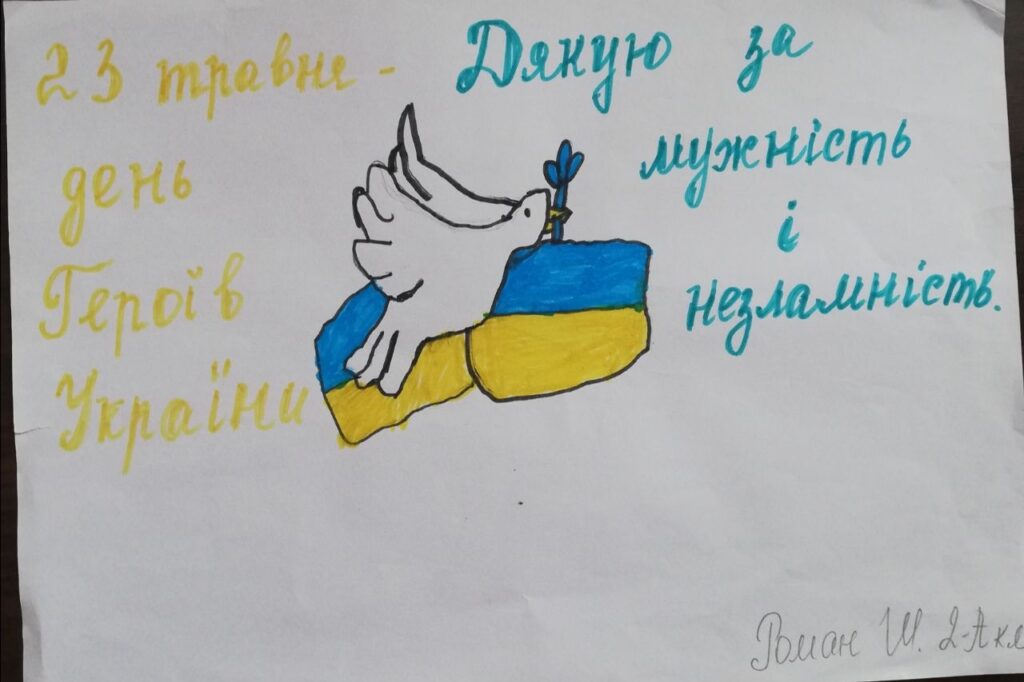 23 травне -
день
Героїв
України
Дякую за
мужність
і
незламність.
Роман Ш. 2-А кл